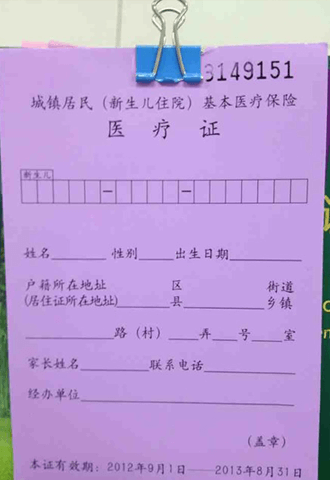 3149151
城镇居民（新生儿住院）基本医疗保险
医疗证
新生儿
姓名 性别 出生日期
户籍所在地址 区 街道
(居住证所在地址) 县 乡镇
路（村） 弄 号 室
家长姓名 联系电话
经办单位
（盖章）
本证有效期：2012年9月1日——2013年8月31日